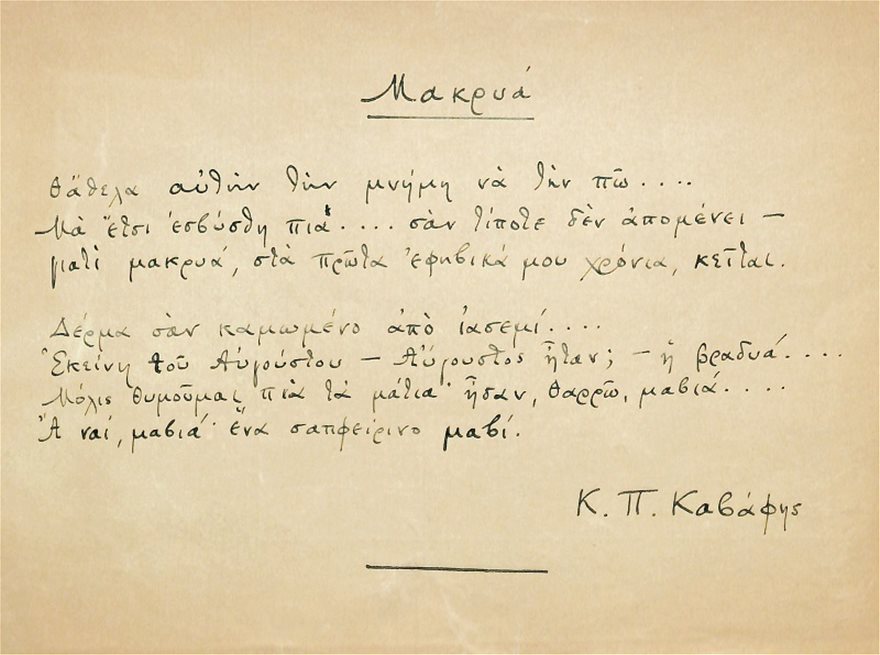 Μακρυά
Θἄθελα αὐτὴν τὴν μνήμη νὰ τὴν πῶ....
Μὰ ἔτσι ἐσβύσθη πιά.... σὰν τίποτε δὲν ἀπομένει —
γιατὶ μακρυά, στὰ πρῶτα ἐφηβικά μου χρόνια, κεῖται.
Δέρμα σὰν καμωμένο ἀπὸ ἰασεμί....
Ἐκείνη τοῦ Αὐγούστου — Αὔγουστος ἦταν; — ἡ βραδυά....
Μόλις θυμοῦμαι πιὰ τὰ μάτια· ἦσαν, θαρρῶ, μαβιά....
Ἆ ναί, μαβιά· ἕνα σαπφείρινο μαβί.
Κ. Π. Καβάφης